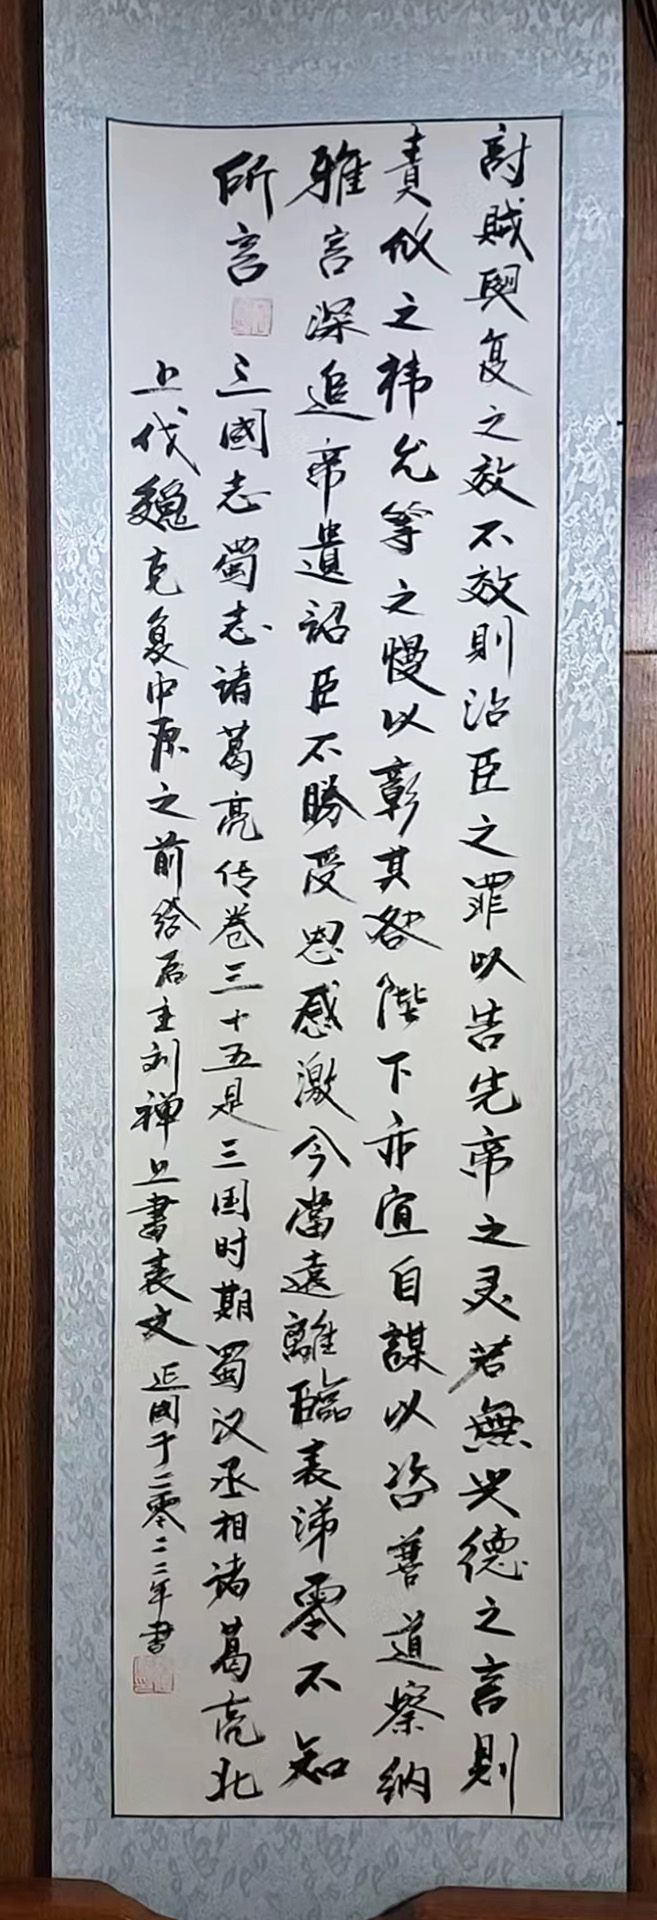 討賊興复之效不效則治臣之罪以告先帝之灵若無兴德之言則
責攸之禕允等之慢以彰其咎陛下亦宜自謀以咨善道察納
雅言深追帝遺詔臣不勝受恩感激今當遠離臨表涕零不知
所言
三國志蜀志诸葛亮传卷三十五是三国时期蜀汉丞相诸葛亮北
上伐魏克复中原之前给后主刘禅上書表文
延国于二零二二年書